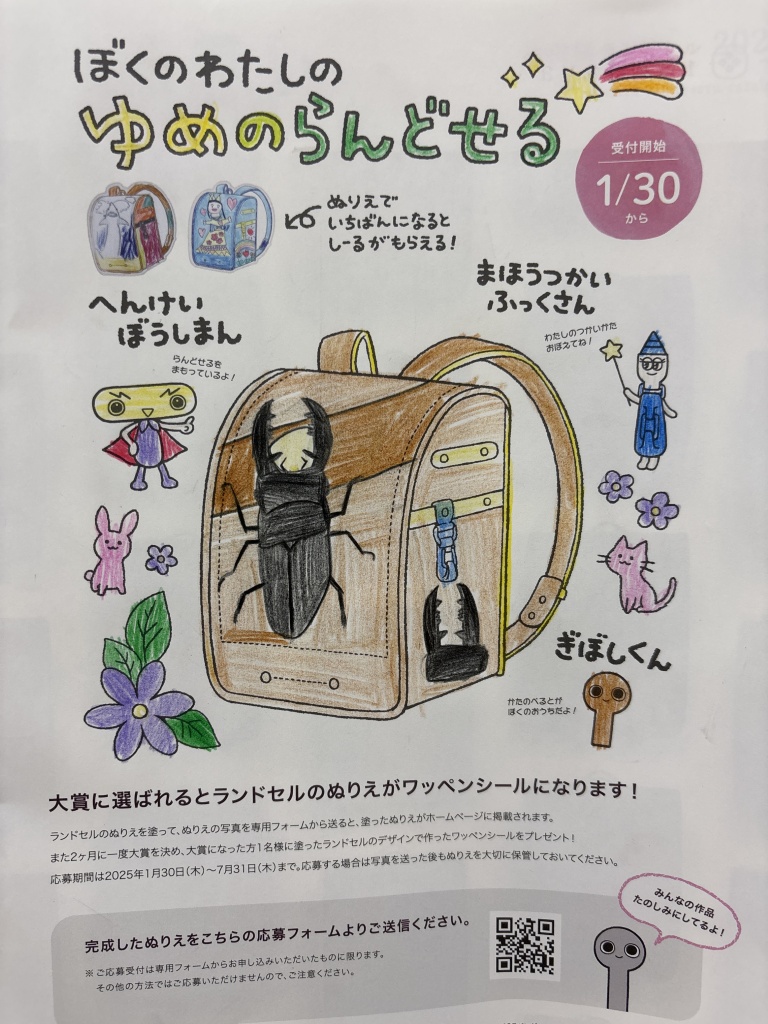 ぼくのわたしの
ゆめのらんどせる
受付開始
1/30
から
ぬりえで
いちばんになると
しーるがもらえる!
まほうつかい
ふっくさん
わたしのつかいかた
おぼえてね!
へんけい
ぼうしまん
らんどせるを
まもっているよ!
ぎぼしくん
かたのべるとが
ぼくのおうちだよ!
大賞に選ばれるとランドセルのぬりえがワッペンシールになります!
ランドセルのぬりえを塗って、ぬりえの写真を専用フォームから送ると、塗ったぬりえがホームページに掲載されます。
また2ヶ月に一度大賞を決め、大賞になった方1名様に塗ったランドセルのデザインで作ったワッペンシールをプレゼント!
応募期間は2025年1月30日(木)～7月31日(木)まで。応募する場合は写真を送った後もぬりえを大切に保管しておいてください。
みんなの作品
たのしみにしてるよ!
完成したぬりえをこちらの応募フォームよりご送信ください。
※ご応募受付は専用フォームからお申し込みいただいたものに限ります。
その他の方法ではご応募いただけませんので、ご注意ください。